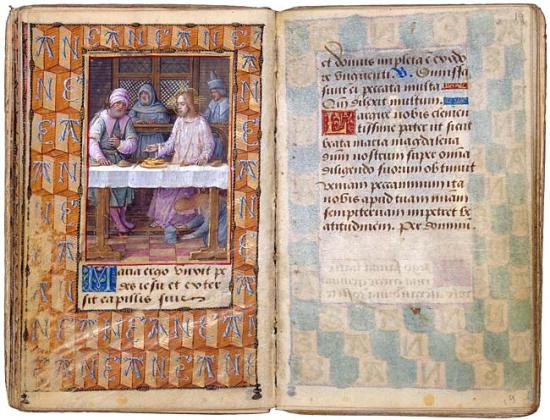 Maria ergo unxit pe
des iesu et exter
sit capillis suis
et domus impleta e ex odo
re unguenti. V. Dimissa
sunt ei peccata multa
Qm dilexit multum.
Largire nobis clemen
tissime pater ut sicut
beata maria magdalena
dnm nostrum super omia
diligendo suorum obtinuit
veniam peccaminum ita
nobis apud tuam miam
sempiternam impetret be
atitudinem. Per dominum.